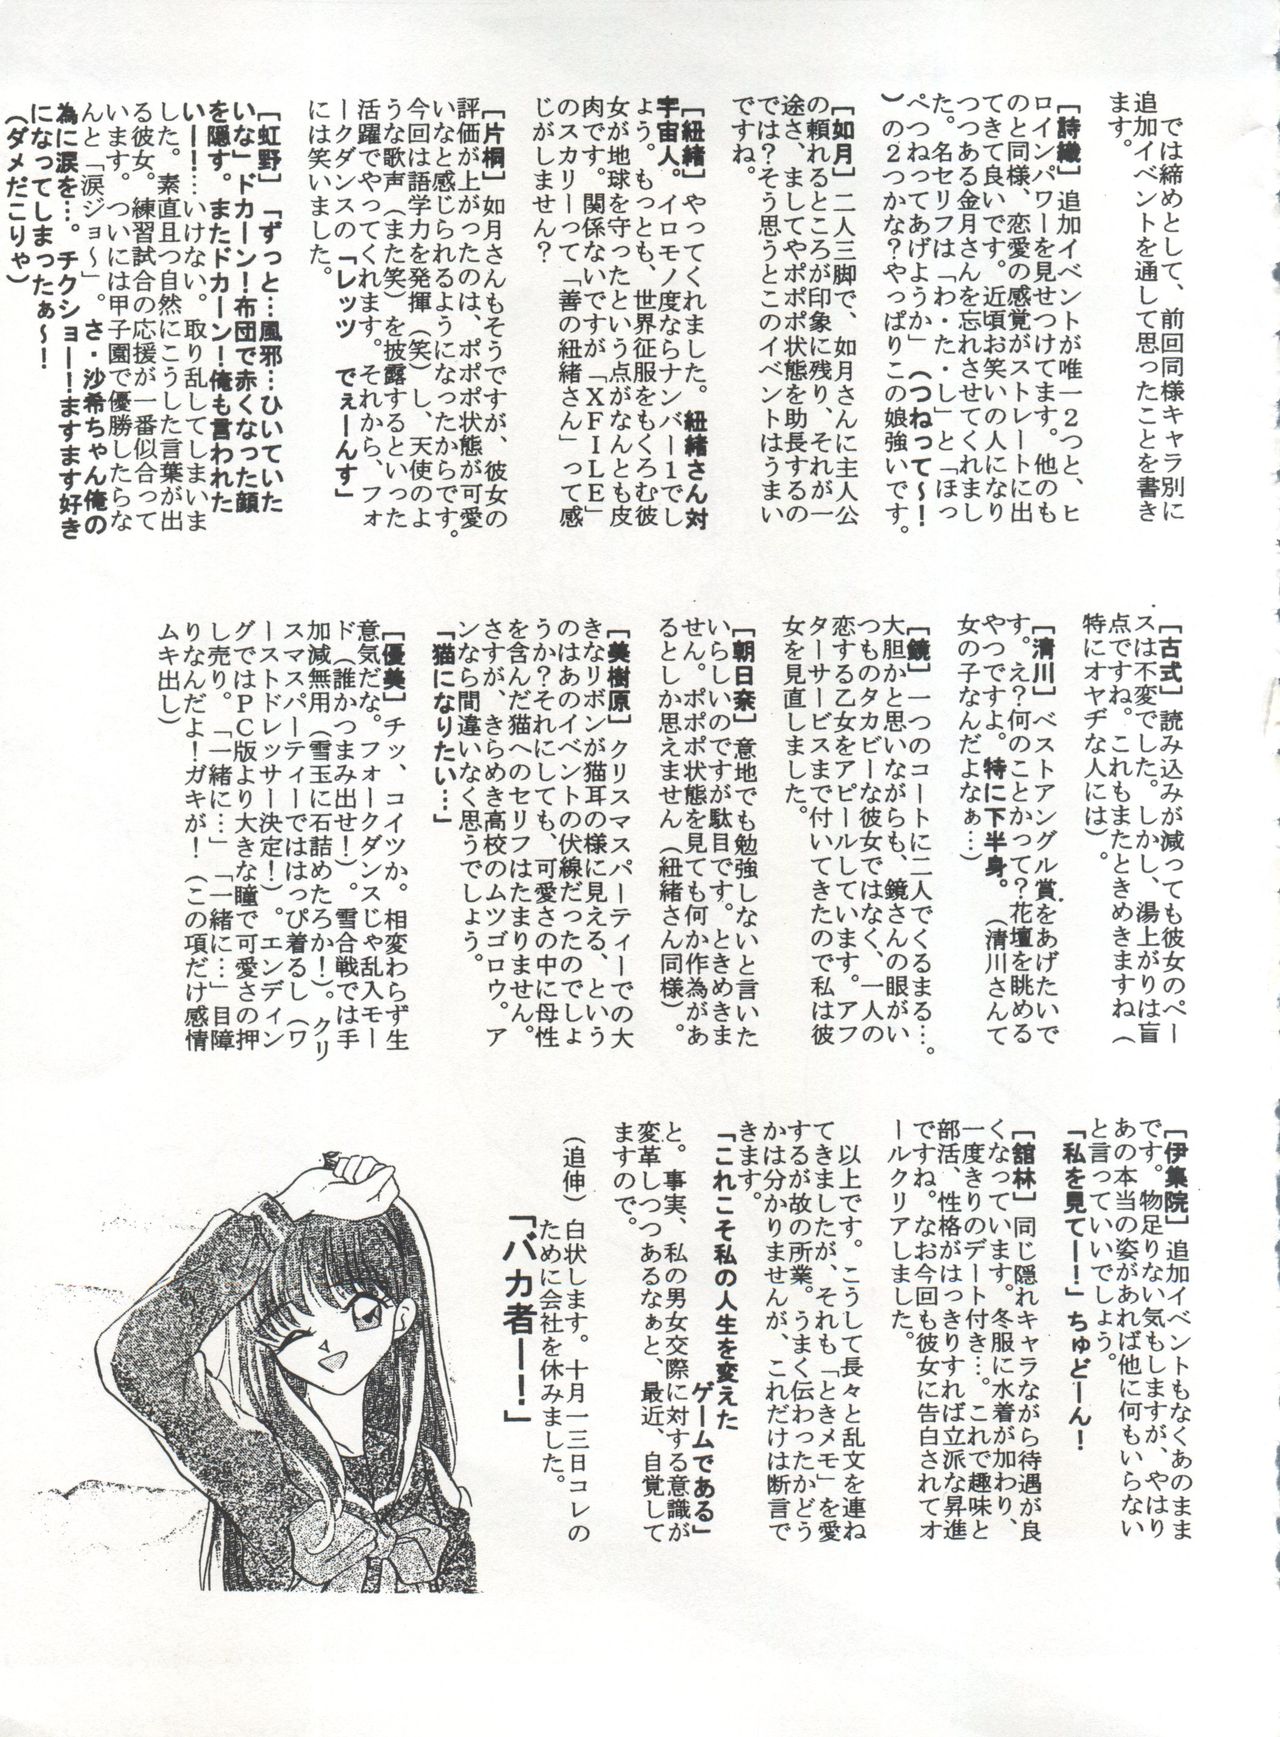 では締めとして、前回同様キャラ別に
追加イベントを通して思ったことを書き
ます。
[詩織]追加イベントが唯一2つと、ヒ
ロインパワーを見せつけてます。他のも
のと同様、恋愛の感覚がストレートに出
てきて良いです。近頃お笑いの人になり
つつある金月さんを忘れさせてくれまし
た。名セリフは「わ・た・し」と「ほっ
ぺつねってあげようか」(つねって～!
)の2つかな?やっぱりこの娘強いです。
[如月]二人三脚で、如月さんに主人公
の頼れるところが印象に残り、それが一
途さ、ましてやポポポ状態を助長するの
では?そう思うとこのイベントはうまい
ですね。
[紐緒]やってくれました。紐緒さん対
宇宙人。イロモノ度ならナンバー1でし
ょう。もっとも、世界征服をもくろむ彼
女が地球を守ったという点がなんとも皮
肉です。関係ないですが「XFILE」
のスカリーって「善の紐緒さん」って感
じがしません?
[片桐]如月さんもそうですが、彼女の
評価が上がったのは、ポポポ状態が可愛
いなと感じられるようになったからです。
今回は語学力を発揮(笑)し、天使のよ
うな歌声(また笑)を披露するといった
活躍でやってくれます。それから、フォ
ークダンスの「レッツ でぇーんす」
には笑いました。
[虹野]「ずっと…風邪…ひいていた
いな」ドカーン!布団で赤くなった顔
を隠す。またドカーン!俺も言われた
いー!…いけない。取り乱してしまいま
した。素直且つ自然にこうした言葉が出
る彼女。練習試合の応援が一番似合って
います。ついには甲子園で優勝したらな
んと「涙ジョ～」。さ・沙希ちゃん俺の
為に涙を…。チクショー!ますます好き
になってしまったぁ～!
(ダメだこりゃ)
[古式]読み込みが減っても彼女のペー
スは不変でした。しかし、湯上がりは盲
点ですね。これもまたときめきますね(
特にオヤヂな人には)。
[清川]ベストアングル賞をあげたいで
す。え?何のことかって?花壇を眺める
やつですよ。特に下半身。(清川さんて
女の子なんだよなぁ…)
[鏡]一つのコートに二人でくるまる…。
大胆かと思いながらも、鏡さんの眼がい
つものタカビーな彼女ではなく、一人の
恋する乙女をアピールしています。アフ
ターサービスまで付いてきたので私は彼
女を見直しました。
[朝日奈]意地でも勉強しないと言いた
いらしいのですが駄目です。ときめきま
せん。ポポポ状態を見ても何か作為があ
るとしか思えません(紐緒さん同様)。
[美樹原]クリスマスパーティーでの大
きなリボンが猫耳の様に見える、という
のはあのイベントの伏線だったのでしょ
うか?それにしても、可愛さの中に母性
を含んだ猫へのセリフはたまりません。
さすが、きらめき高校のムツゴロウ。ア
ンなら間違いなく思うでしょう。
「猫になりたい…」
[優美]チッ、コイツか。相変わらず生
意気だな。フォークダンスじゃ乱入モー
ド(誰かつまみ出せ!)。雪合戦では手
加減無用(雪玉に石詰めたろか!)。クリ
スマスパーティーでははっぴ着るし(ワ
ーストドレッサー決定!)。エンディン
グではPC版より大きな瞳で可愛さの押
し売り。「一緒に…」「一緒に…」目障
りなんだよ!ガキが!(この項だけ感情
ムキ出し)
[伊集院]追加イベントもなくあのまま
です。物足りない気もしますが、やはり
あの本当の姿があれば他に何もいらない
と言っていいでしょう。
「私を見てー!」ちゅどーん!
[舘林]同じ隠れキャラながら待遇が良
くなっています。冬服に水着が加わり、
一度きりのデート付き…。これで趣味と
部活、性格がはっきりすれば立派な昇進
ですね。なお今回も彼女に告白されてオ
ールクリアしました。
以上です。こうして長々と乱文を連ね
てきましたが、それも「ときメモ」を愛
するが故の所業。うまく伝わったかどう
かは分かりませんが、これだけは断言で
きます。
「これこそ私の人生を変えた
ゲームである」
と。事実、私の男女交際に対する意識が
変革しつつあるなぁと、最近、自覚して
ますので。
(追伸)白状します。十月一三日コレの
ために会社を休みました。
「バカ者ーー!」